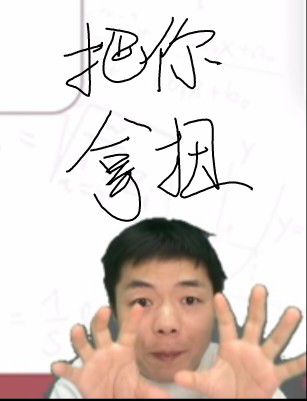 把你
拿捏